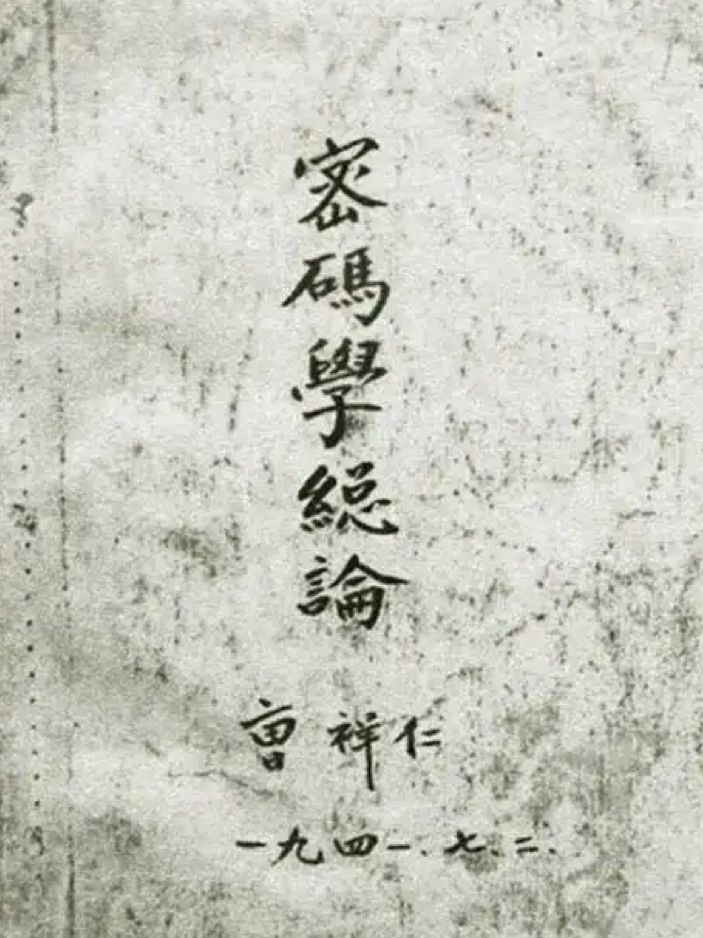 密碼學総論
曹祥仁
一九四一.七.二.